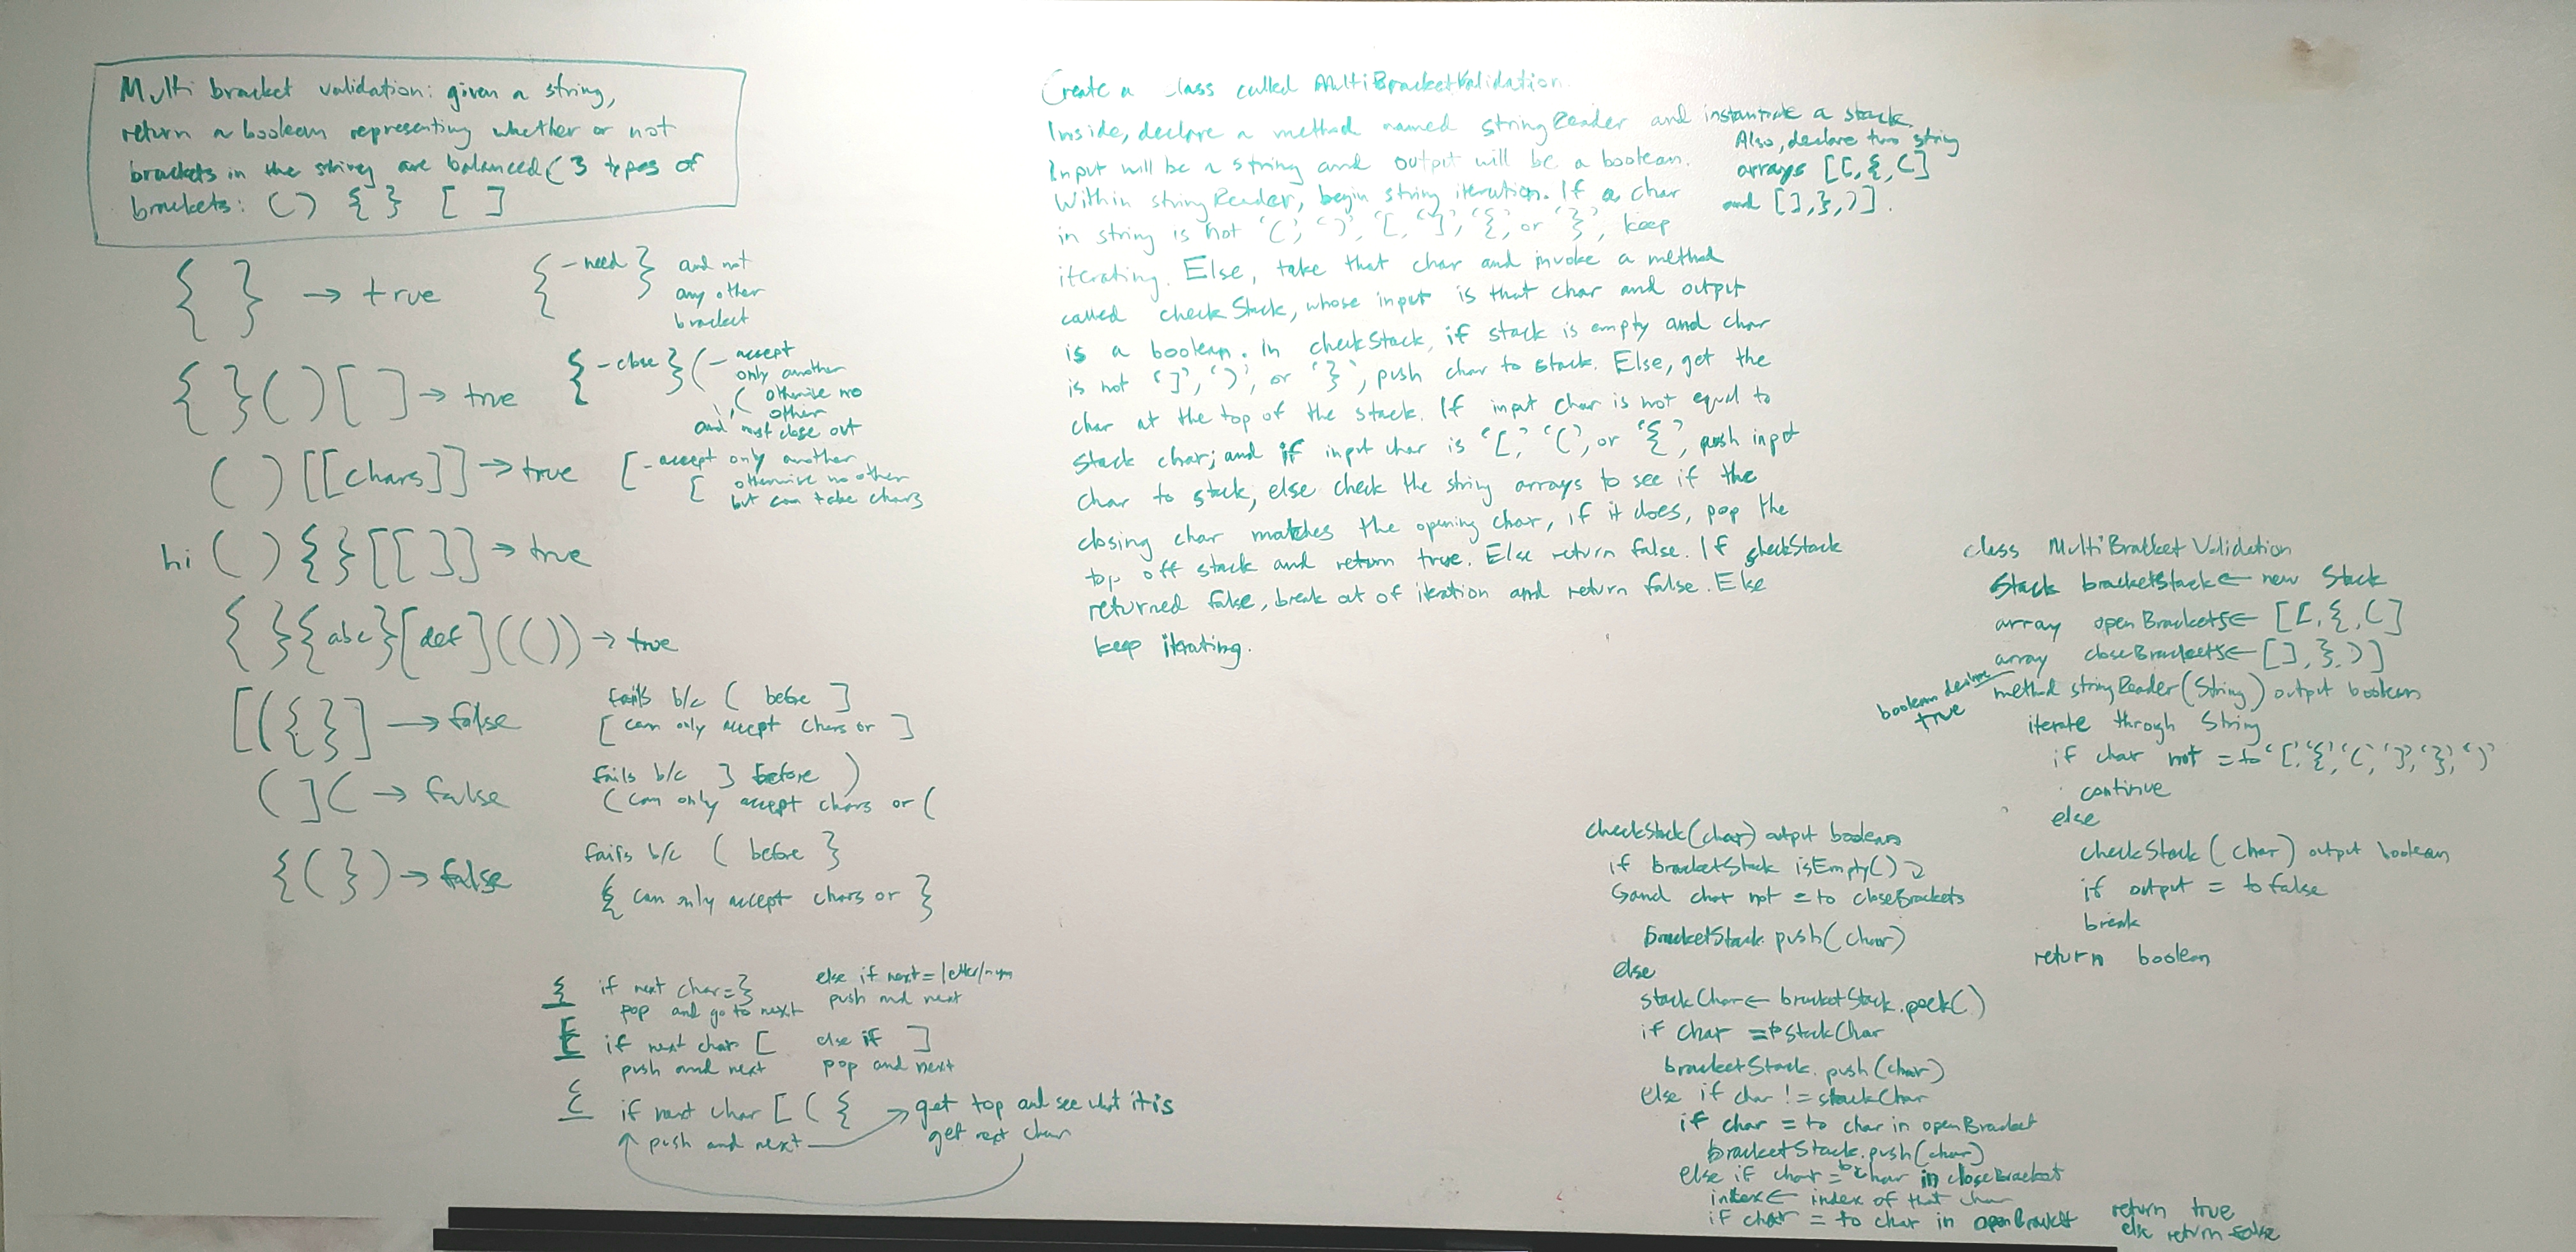 Multi bracket validation: given a string,
return a boolean representing whether or not
brackets in the string are balanced (3 types of
brackets: () {} []
{ } → true
{ - need } and not
any other
bracket
{ } ( ) [ ] → true
{ - close } ( - accept
only another
( otherwise no
other
and must close out
( ) [[chars]] → true
[ - accept only another
[ otherwise no other
but can take chars
hi ( ) { } [ [ ] ] → true
{ } { abc } [ def ] ( ( ) ) → true
[ ( { } ] → false
fails b/c ( before ]
[ can only accept chars or ]
( ] ( → false
fails b/c ] before )
( can only accept chars or (
{ ( } ) → false
fails b/c ( before }
{ can only accept chars or }
{ if next char = }
pop and go to next
else if next = letter/num
push and next
[ if next char [
push and next
else if ]
pop and next
{ if next char [ ( {
push and next
get top and see what it is
get next char
Create a class called MultiBracketValidation.
Inside, declare a method named stringReader and instantiate a stack.
Also, declare two string
arrays [[, {, (]
and [], }, )].
Input will be a string and output will be a boolean.
Within stringReader, begin string iteration. If a char
in string is not '(', ')', '[', ']', '{', or '}', keep
iterating. Else, take that char and invoke a method
called checkStack, whose input is that char and output
is a boolean. In checkStack, if stack is empty and char
is not ']', ')', or '}', push char to stack. Else, get the
char at the top of the stack. If input char is not equal to
stack char; and if input char is '[', '(', or '{', push input
char to stack, else check the string arrays to see if the
closing char matches the opening char, if it does, pop the
top off stack and return true. Else return false. If checkStack
returned false, break out of iteration and return false. Else
keep iterating.
class MultiBracketValidation
Stack bracketStack ← new Stack
array openBrackets ← [[, {, (]
array closeBrackets ← [], }, )]
boolean declare
true
method stringReader(String) output boolean
iterate through String
if char not = to '[', '{', '(', ']', '}', ')'
continue
else
checkStack(char) output boolean
if output = to false
break
return boolean
checkStack(char) output boolean
if bracketStack isEmpty()
and char not = to closeBrackets
bracketStack.push(char)
else
stackChar ← bracketStack.peek()
if char = to stackChar
bracketStack.push(char)
else if char != stackChar
if char = to char in openBracket
bracketStack.push(char)
else if char = to char in closeBracket
index ← index of that char
if char = to char in openBracket return true
else return false